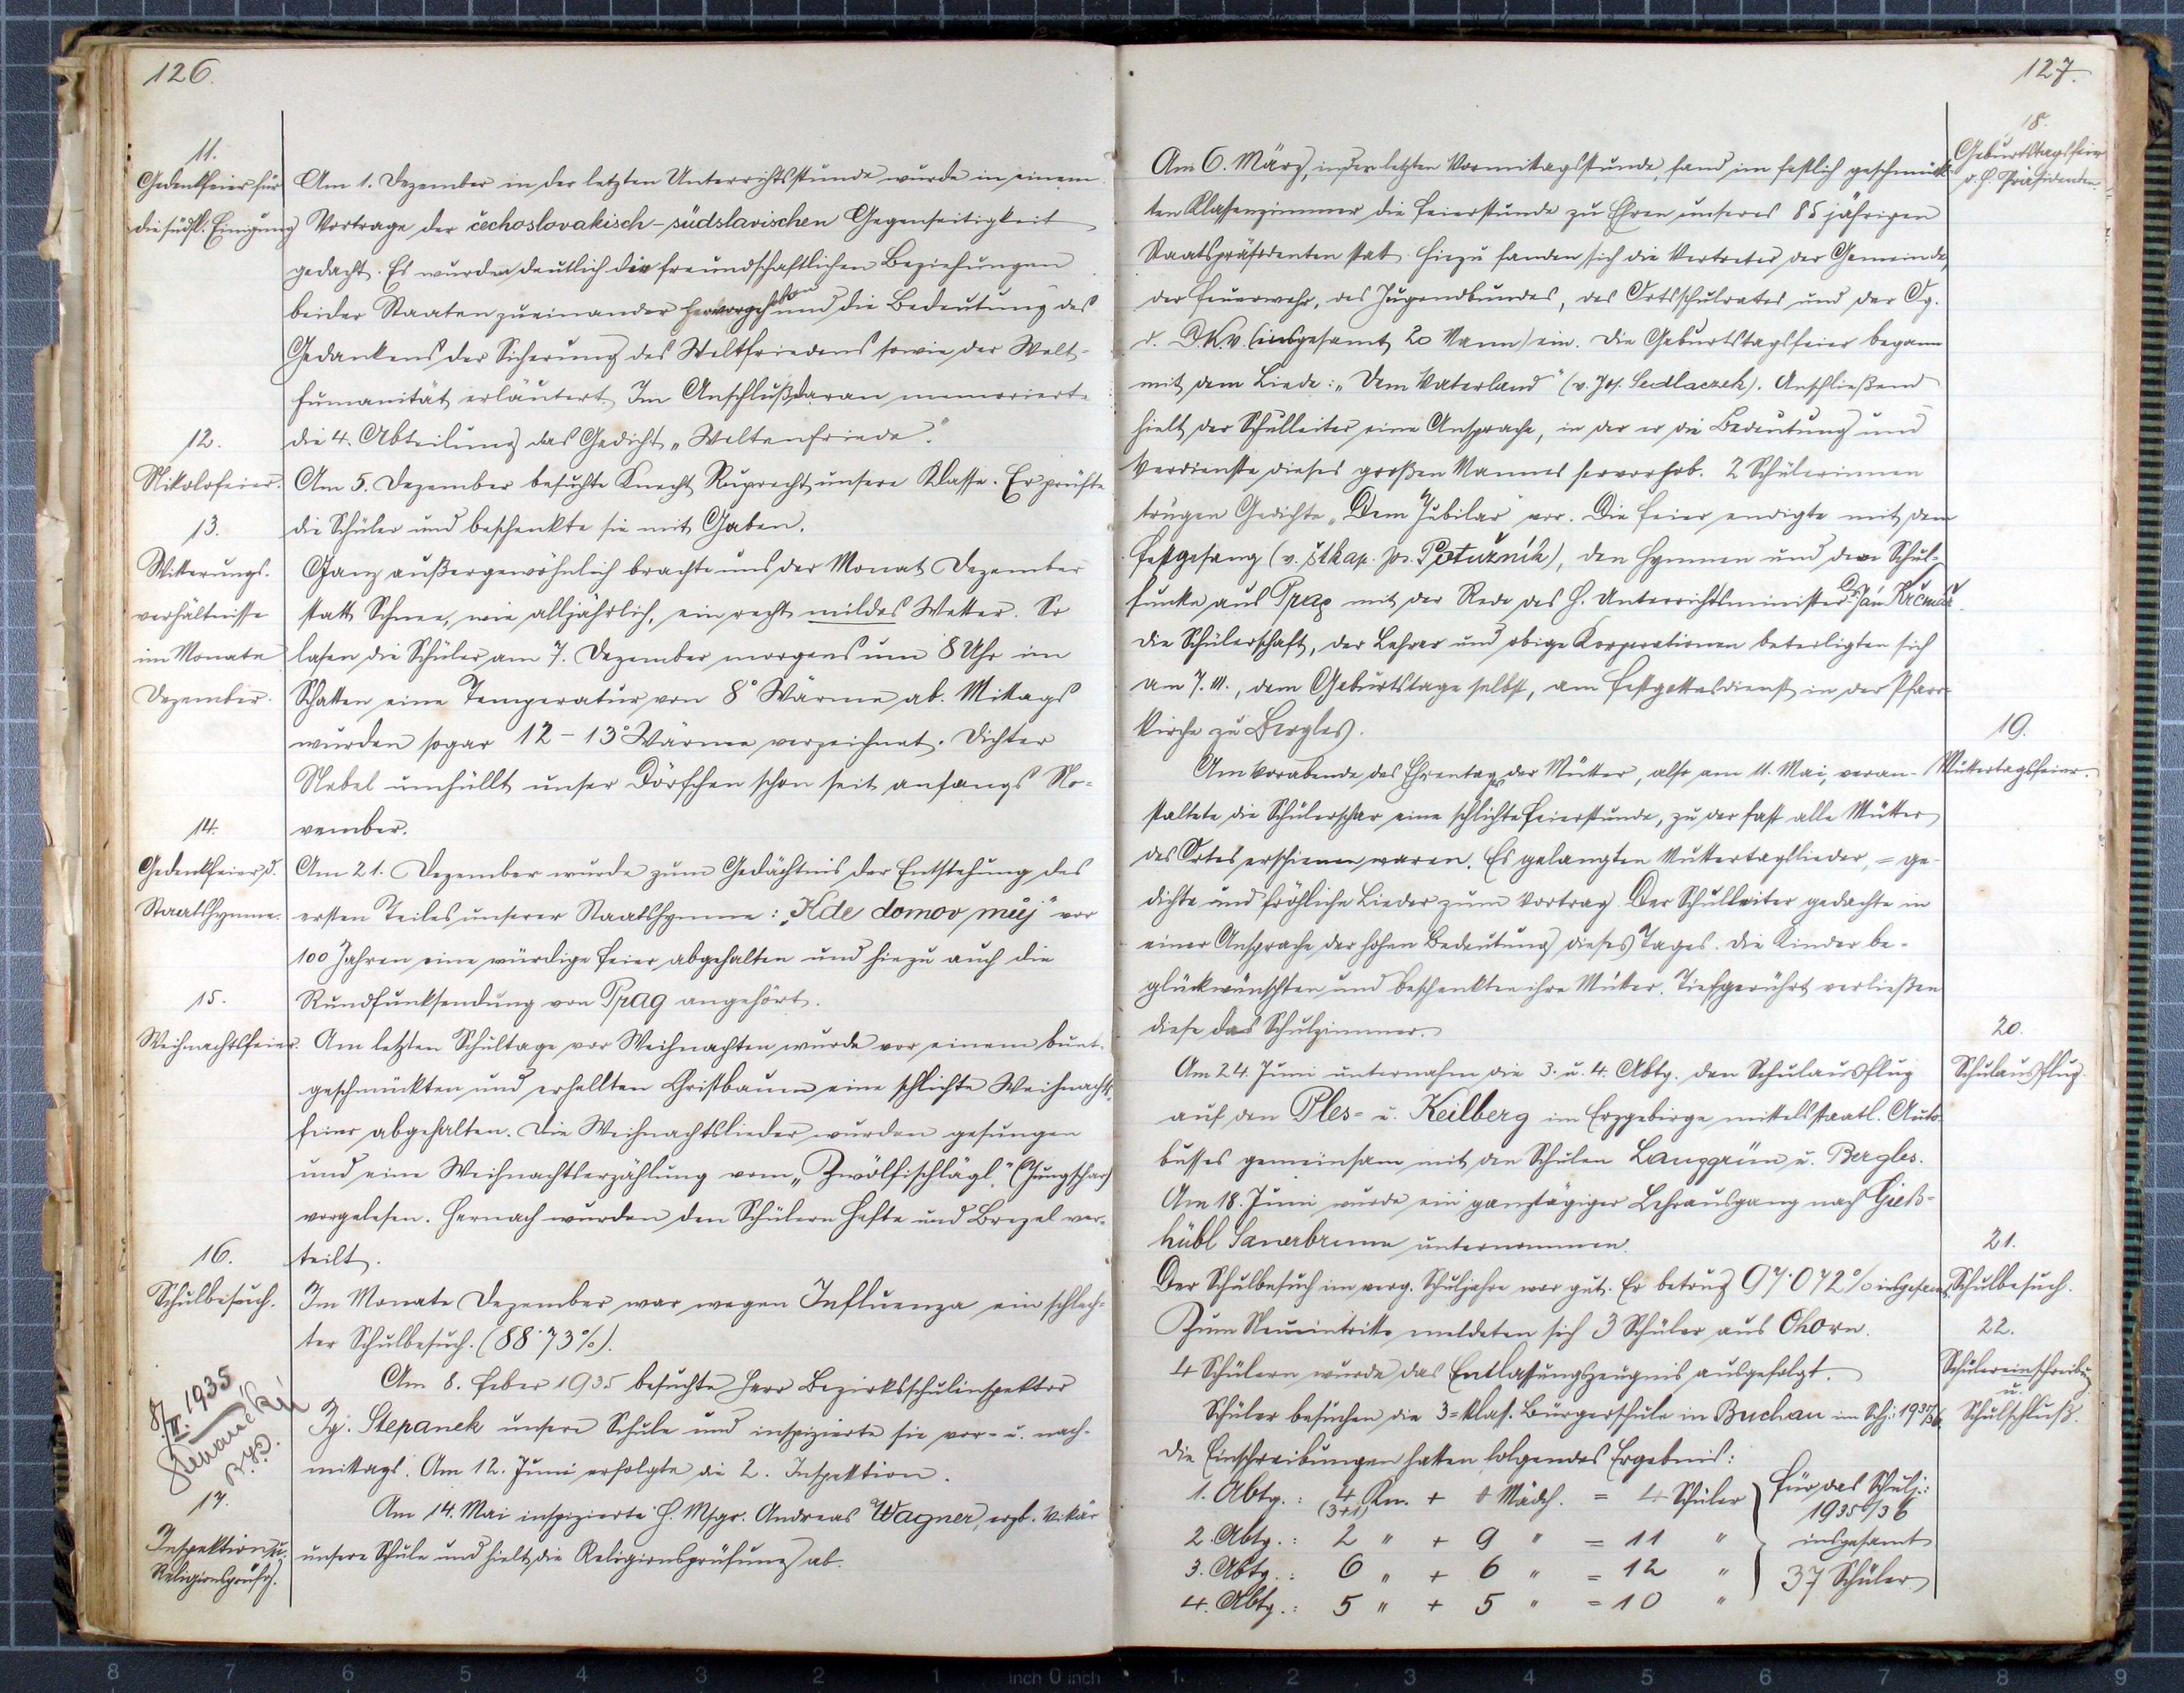 126.
11.
Gedenkfeier für
die südsl. Einigung
Am 1. Dezember in der letzten Unterrichtsstunde wurde in einem
Vortrage der čechoslovakisch-südslavischen Gegenseitigkeit
gedacht. Es wurden deutlich die freundschaftlichen Beziehungen
beider Staaten zueinander hervorgehoben und die Bedeutung des
Gedankens der Sicherung des Weltfriedens sowie der Welt-
humanität erläutert. Im Anschluß daran memorierte
die 4. Abteilung das Gedicht „Weltenfriede".
12.
Nikolofeier.
Am 5. Dezember besuchte Knecht Ruprecht unsere Klasse. Er prüfte
die Schüler und beschenkte sie mit Gaben.
13.
Witterungs-
verhältnisse
im Monate
Dezember.
Ganz außergewöhnlich brachte uns der Monat Dezember
statt Schnee, wie alljährlich, ein recht mildes Wetter. So
lasen die Schüler am 7. Dezember morgens um 8 Uhr im
Schatten eine Temperatur von 8° Wärme ab. Mittags
wurden sogar 12-13° Wärme verzeichnet. Dichter
Nebel umhüllt unser Dörfchen schon seit anfangs No-
vember.
14.
Gedenkfeier d.
Staatshymne.
Am 21. Dezember wurde zum Gedächtnis der Entstehung des
ersten Teiles unserer Staatshymne: „Kde domov můj" vor
100 Jahren eine würdige Feier abgehalten und hiezu auch die
Rundfunksendung von Prag angehört.
15.
Weihnachtsfeier.
Am letzten Schultage vor Weihnachten wurde vor einem bunt-
geschmückten und erhellten Christbaum eine schlichte Weihnachts-
feier abgehalten. Die Weihnachtslieder wurden gesungen
und eine Weihnachtserzählung vom „Zwölfischlägl" (Jungschar)
vorgelesen. Hernach wurden den Schülern Hefte und Brezel ver-
teilt.
16.
Schulbesuch.
Im Monate Dezember war wegen Influenza ein schlech-
ter Schulbesuch. (88·73%).
8./II. 1935
Am 8. Feber 1935 besuchte Herr Bezirksschulinspektor
Ig. Stepanek unsere Schule und inspizierte sie vor- u. nach-
mittags. Am 12. Juni erfolgte die 2. Inspektion.
17.
Inspektion u.
Religionsprüfg.
Am 14. Mai inspizierte H. Msgr. Andreas Wagner, erzb. Vikär
unsere Schule und hielt die Religionsprüfung ab.
127.
18.
Geburtstagsfeier
d. H. Präsidenten
Am 6. März, in der letzten Vormittagsstunde, fand im festlich geschmück-
ten Klassenzimmer die Feierstunde zu Ehren unseres 85 jährigen
Staatspräsidenten statt. Hiezu fanden sich die Vertreter der Gemeinde,
der Feuerwehr, des Jugendbundes, des Ortsschulrates und der Og.
d. D.K.V. (insgesamt 20 Mann) ein. Die Geburtstagsfeier begann
mit dem Liede: „Dem Vaterland" (v. Jos. Sedlaczek). Anschließend
hielt der Schulleiter eine Ansprache, in der er die Bedeutung und
Verdienste dieses großen Mannes hervorhob. 2 Schülerinnen
trugen Gedichte „Dem Jubilar" vor. Die Feier endigte mit dem
Festgesang (v. Stkap. Jos. Potužník), den Hymnen und dem Schul-
funke aus Prag mit der Rede des H. Unterrichtsminister Dr. Jan Krčmář.
Die Schülerschaft, der Lehrer und obige Korporationen beteiligten sich
am 7. III., dem Geburtstage selbst, am Festgottesdienst in der Pfarr-
kirche zu Bergles.
19.
Muttertagsfeier.
Am Vorabende des Ehrentag der Mütter, also am 11. Mai, veran-
staltete die Schülerschar eine schlichte Feierstunde, zu der fast alle Mütter
des Ortes erschienen waren. Es gelangten Muttertagslieder, -ge-
dichte und fröhliche Lieder zum Vortrag. Der Schulleiter gedachte in
einer Ansprache der hohen Bedeutung dieses Tages. Die Kinder be-
glückwünschten und beschenkten ihre Mütter. Tiefgerührt verließen
diese das Schulzimmer.
20.
Schulausflug.
Am 24. Juni unternahm die 3. u. 4. Abtg. den Schulausflug
auf den Ples- u. Keilberg im Erzgebirge mittels staatl. Auto-
busses gemeinsam mit den Schulen Langgrün u. Bergles.
Am 18. Juni wurde ein ganztägiger Lehrausgang nach Gieß-
hübl Sauerbrunn unternommen.
21.
Schulbesuch.
Der Schulbesuch im verg. Schuljahre war gut. Er betrug 97·072% insgesamt.
22.
Schülereinschreibung
u.
Schulschluß.
Zum Neueintritte meldeten sich 3 Schüler aus Ohorn.
4 Schülern wurde das Entlassungszeugnis ausgefolgt.
Schüler besuchen die 3-klas. Bürgerschule in Buchau im Schj.: 1935/36
Die Einschreibungen hatten folgendes Ergebnis:
1. Abtg.: 4 Kn. + 0 Mädch. = 4 Schüler
(3+1)
2. Abtg.: 2 " + 9 " = 11 "
3. Abtg.: 6 " + 6 " = 12 "
4. Abtg.: 5 " + 5 " = 10 "
für das Schulj.:
1935/36
insgesamt
37 Schüler
8 7 6 5 4 3 2 1 inch 0 inch 1 2 3 4 5 6 7 8 9